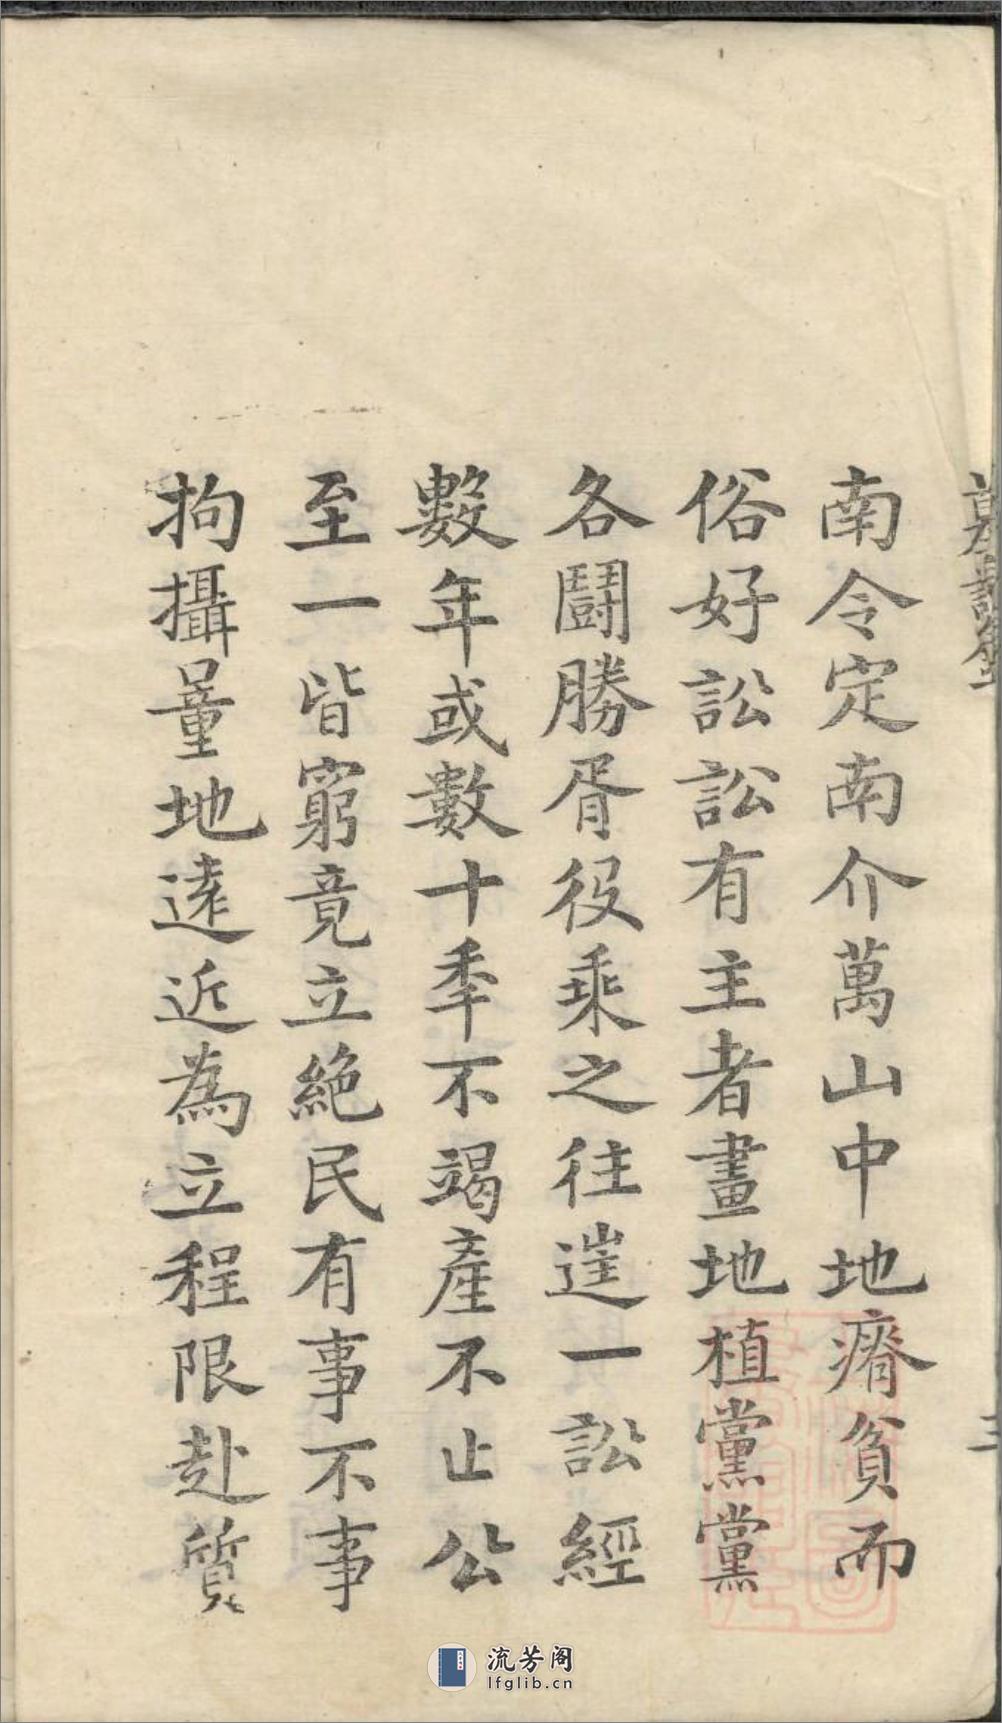 南令定南介萬山中地瘠貧而
俗好訟訟有主者畫地植黨黨
各鬪勝胥役乘之往逹一訟經
數年或數十秊不竭產不止公
至一皆窮竟立絶民有事不事
拘攝量地遠近為立程限赴質
三
流芳阁
lfglib.cn